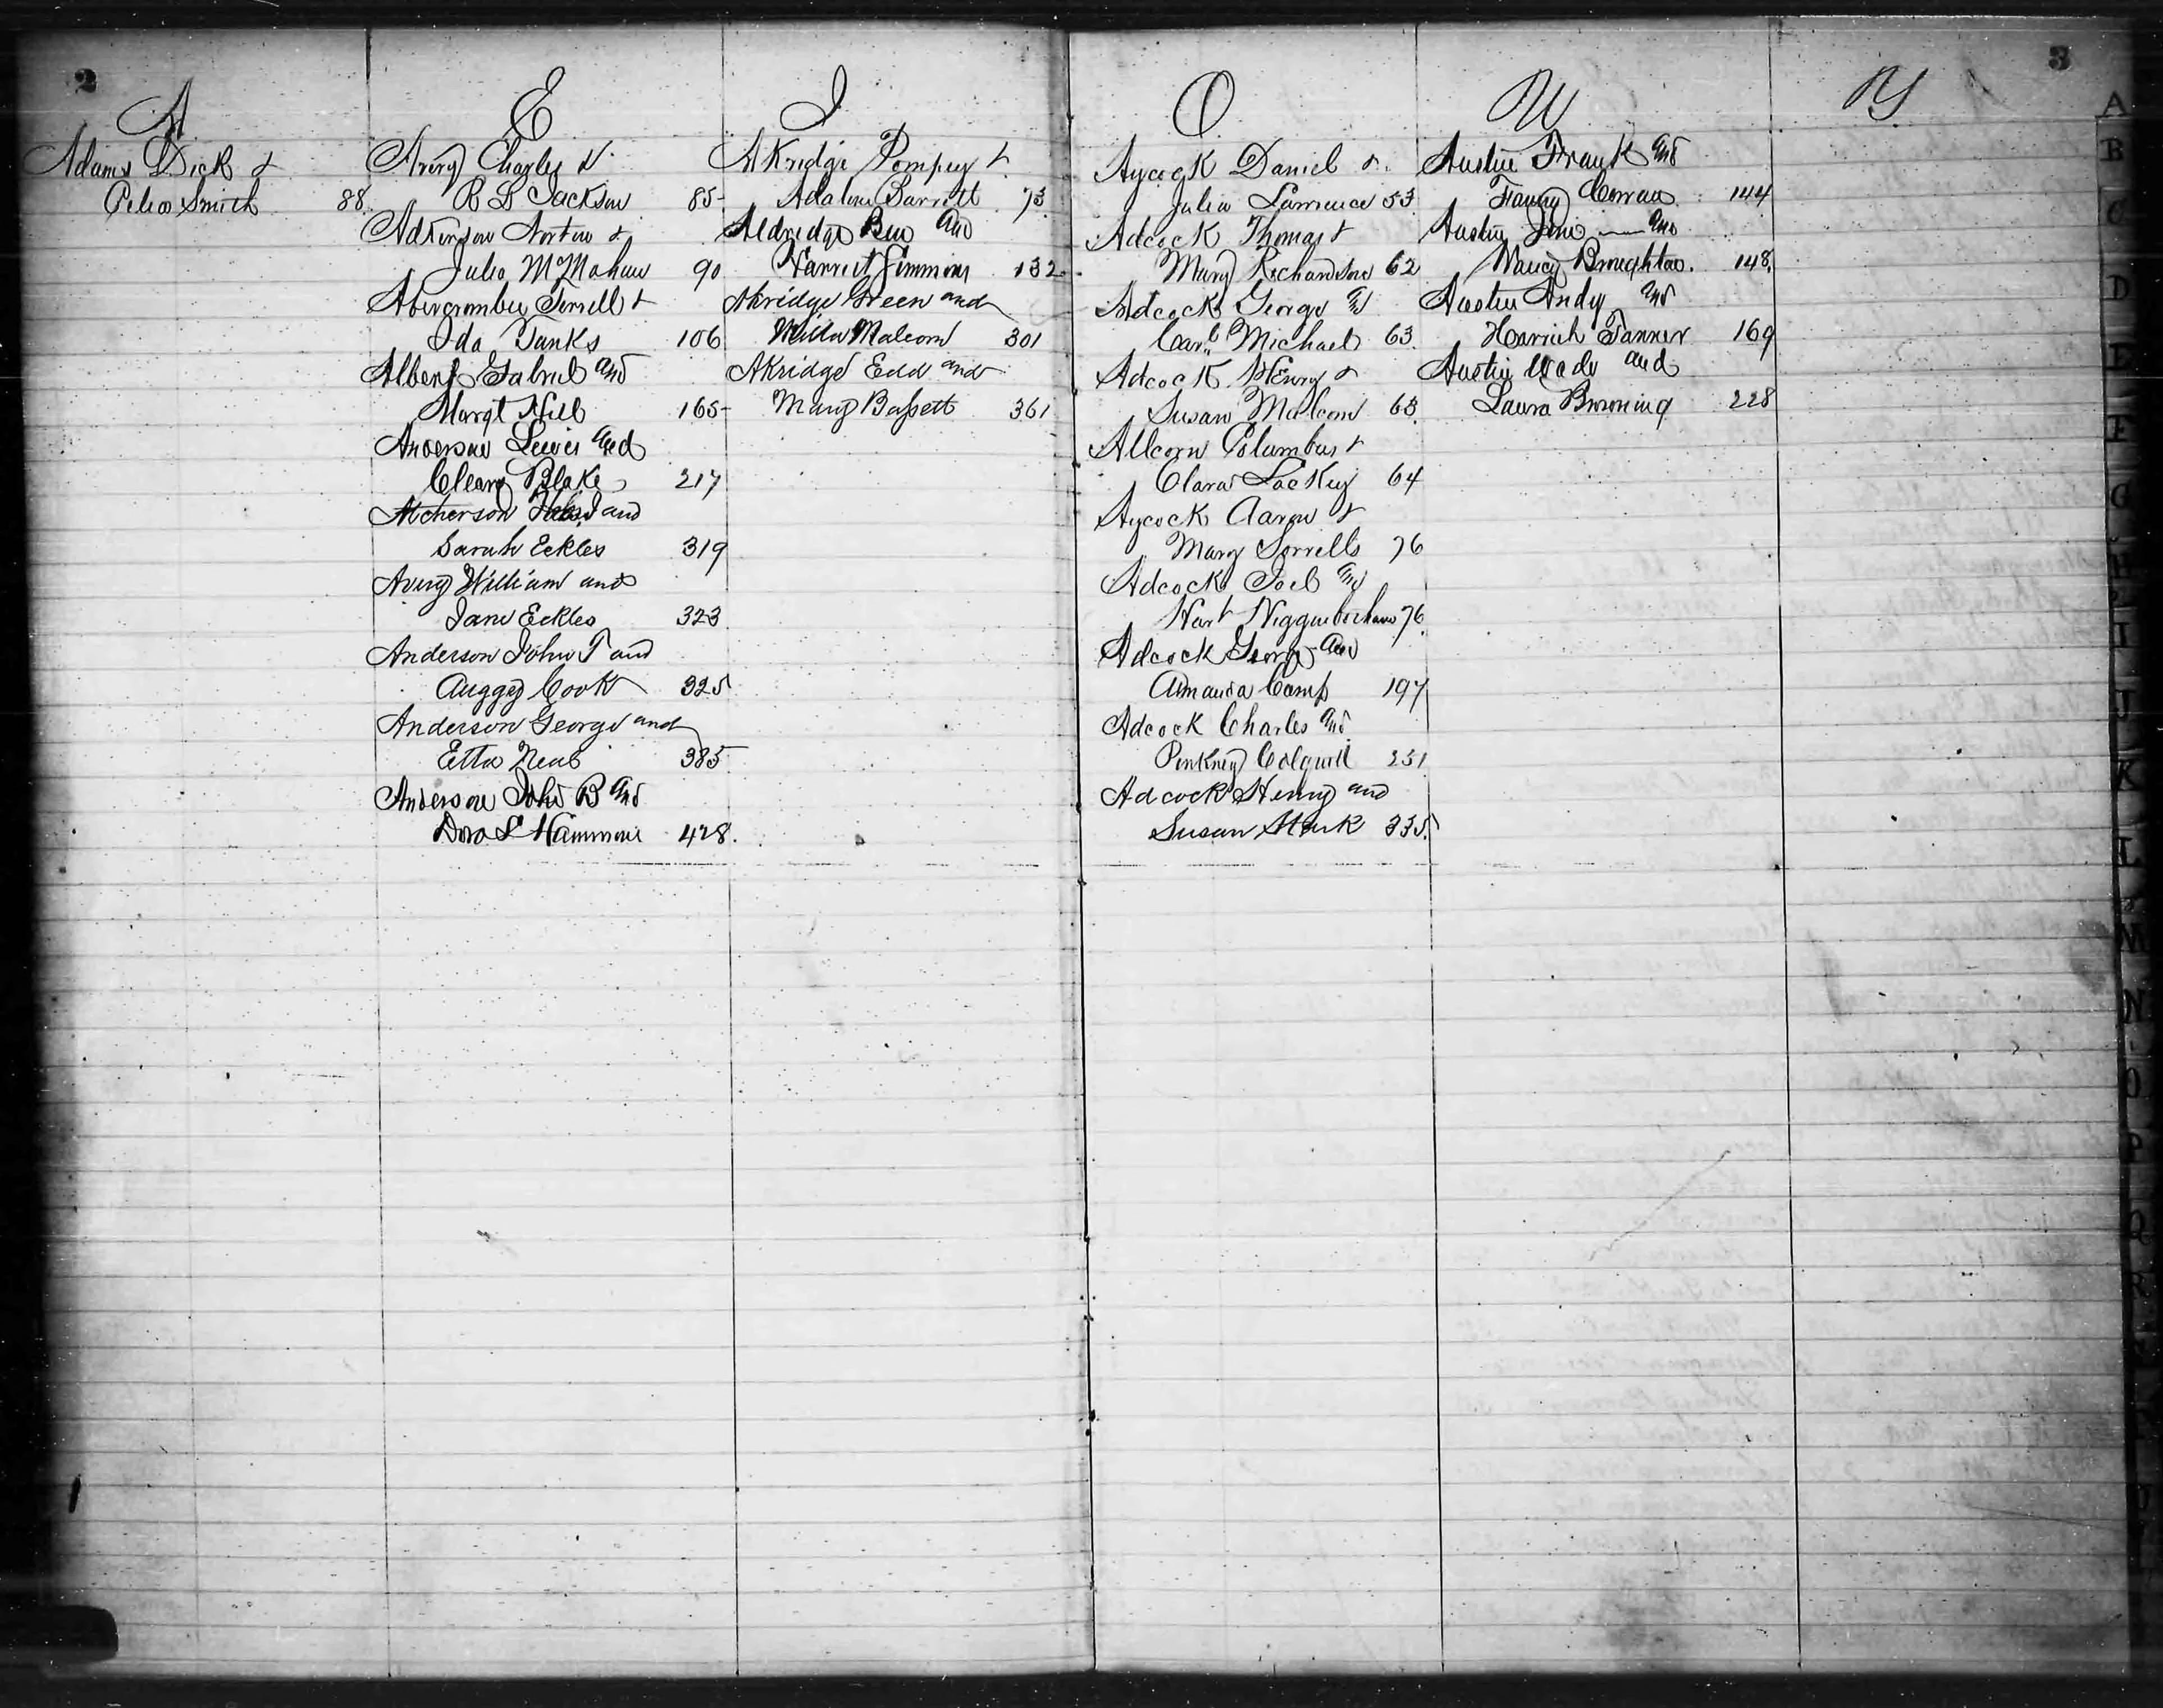 2
A
Adams Dick &
Celia Smith 88
E
Avery Charles &
R L Jackson 85
Adkinson Norton &
Julia McMahan 90
Abercrombie Terrell &
Ida Tanks 106
Albert Gabriel and
Margt Hill 165
Anderson Lewis and
Cleary Blake 217
Atcherson and
Sarah Eckles 319
Avery William and
Jane Eckles 323
Anderson John T and
Auggy Cook 325
Anderson George and
Etta Neal 385
Anderson John B and
Dora L Hammons 428.
I
AKridge Pompey &
Adaline Barrett 73
Aldredge Ben and
Harriet Simmons 132
Akridge Green and
Malcom 301
AKridge Edd and
Mary Bassett 361
3
O
Aycock Daniel &
Julia Lawrence 53
Adcock Thomas &
Mary Richardson 62
Adcock George and
Michael 63
Adcock Henry &
Susan Malcom 63
Allcorn Columbus &
Clara Lackey 64
Aycock Aaron &
Mary Sorrells 76
Adcock Joel and
Hart 76
Adcock George and
Amanda Camp 197
Adcock Charles and
Pinkney Colquitt 251
Adcock Henry and
Susan 335.
W
Austin Frank and
Fanny 144
Austin and
Nancy Broughton. 148
Austin Andy and
Harriet Tanner 169
Austin Wade and
Laura Browning 228
Y
A
B
C
D
E
F
G
H
I
J
K
L
M
N
O
P
Q
R